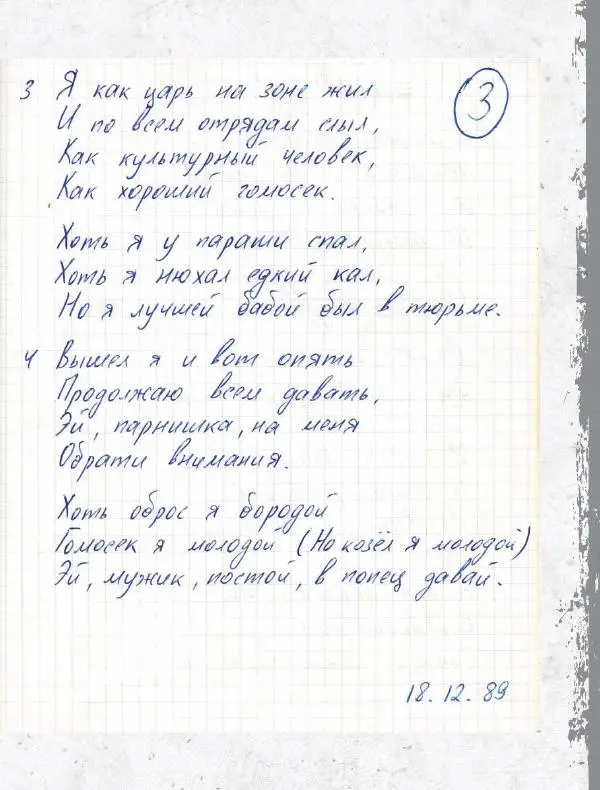 3
3 Я как царь на зоне жил
И по всем отрядам слыл,
Как культурный человек,
Как хороший гомосек.
Хоть я у параши спал,
Хоть я нюхал едкий кал,
Но я лучшей бабой был в тюрьме.
4 Вышел я и вот опять
Продолжаю всем давать,
Эй, парнишка, на меня
Обрати внимания.
Хоть оброс я бородой
Гомосек я молодой (Но козёл я молодой)
Эй, мужик, постой, в попец давай.
18.12.89